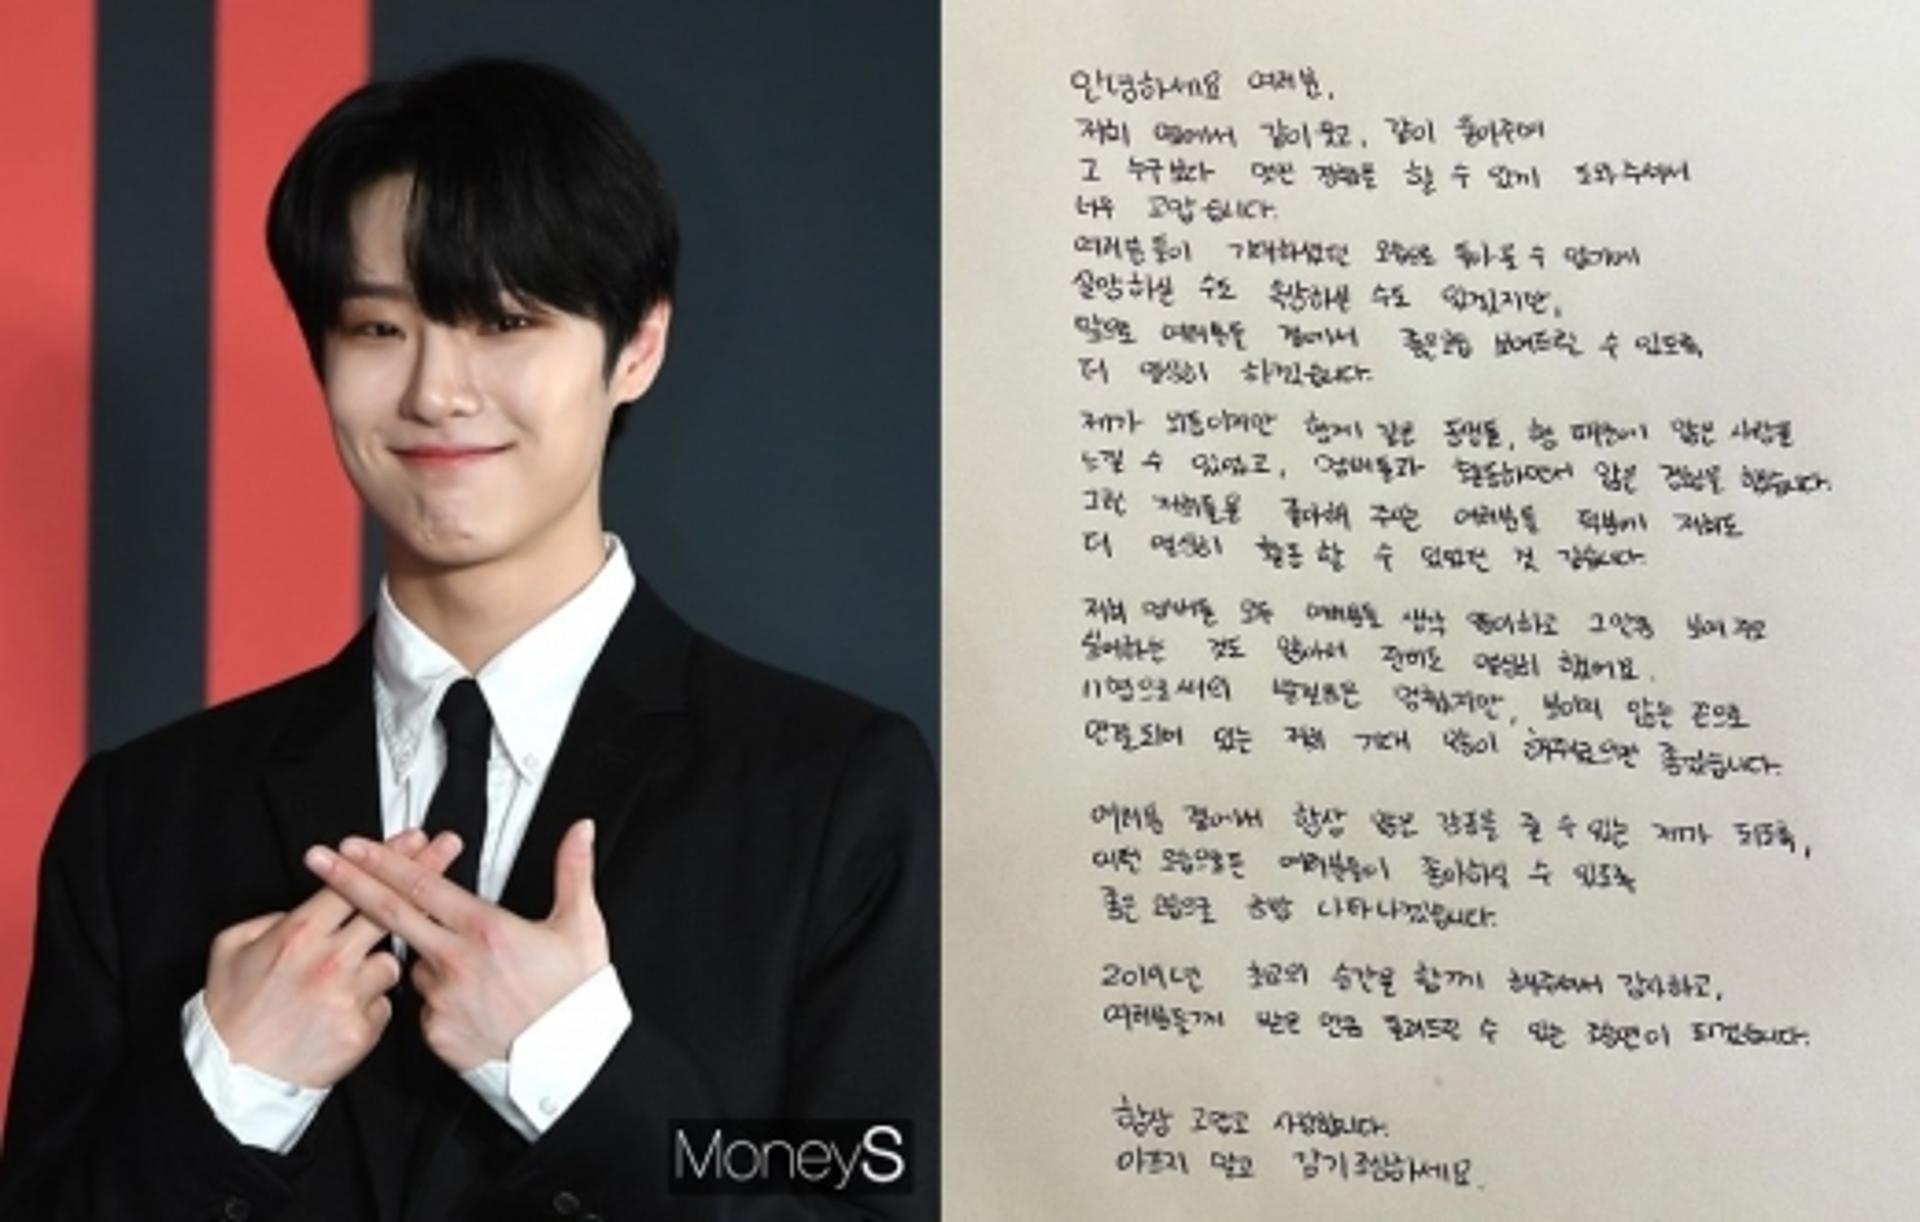 MoneyS
안녕하세요 여러분,
저희 옆에서 같이 웃고, 같이 울어주며
그 누구보다 멋진 경험을 할 수 있게 도와주셔서
너무 고맙습니다.
여러분들이 기대하셨던 모습으로 돌아올 수 없기에
실망하실 수도 속상하실 수도 있겠지만,
앞으로 여러분들 곁에서 좋은모습 보여드릴 수 있도록
더 열심히 하겠습니다.
제가 외동이지만 함께 같은 동생들, 형 때문에 많은 사랑을
느낄 수 있었고, 멤버들과 활동하면서 많은 경험을 했습니다.
그런 저희들을 좋아해 주시는 여러분들 덕분에 저희도
더 열심히 활동 할 수 있었던 것 같습니다.
저희 멤버들 모두 여러분들 생각 많이하고 그만큼 보여 주고
싶어하는 것도 많아서 준비도 열심히 했어요.
11명으로써의 발걸음은 멈췄지만, 보이지 않는 끈으로
연결되어 있는 저희 기대 많이 해주셨으면 좋겠습니다.
여러분 곁에서 항상 많은 감동을 줄 수 있는 제가 되도록,
어떤 모습으로든 여러분들이 좋아하실 수 있도록
좋은 모습으로 나타나겠습니다.
2019년 최고의 순간을 함께 해주셔서 감사하고,
여러분들께 받은 만큼 돌려드릴 수 있는 조승연이 되겠습니다.
항상 고맙고 사랑합니다.
아프지 말고 감기조심하세요.